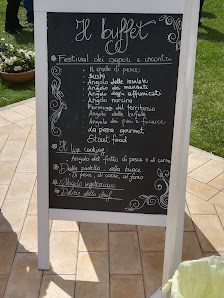 Il buffet
Festival dei sapori e incontri
Il crudo di pesce
Sushi
Angolo delle insalate
Angolo dei marinati
Angolo degli affumicati
Angolo norcino
Formaggi del territorio
Angolo delle bufale
Angolo dei pani e focacce
La pizza gourmet
Street food
Il live cooking
Angolo del fritto di pesce e di carne
Dalla padella alla brace
Di pesce, di carne, al forno
Angolo vegetariano
Delizie dello chef